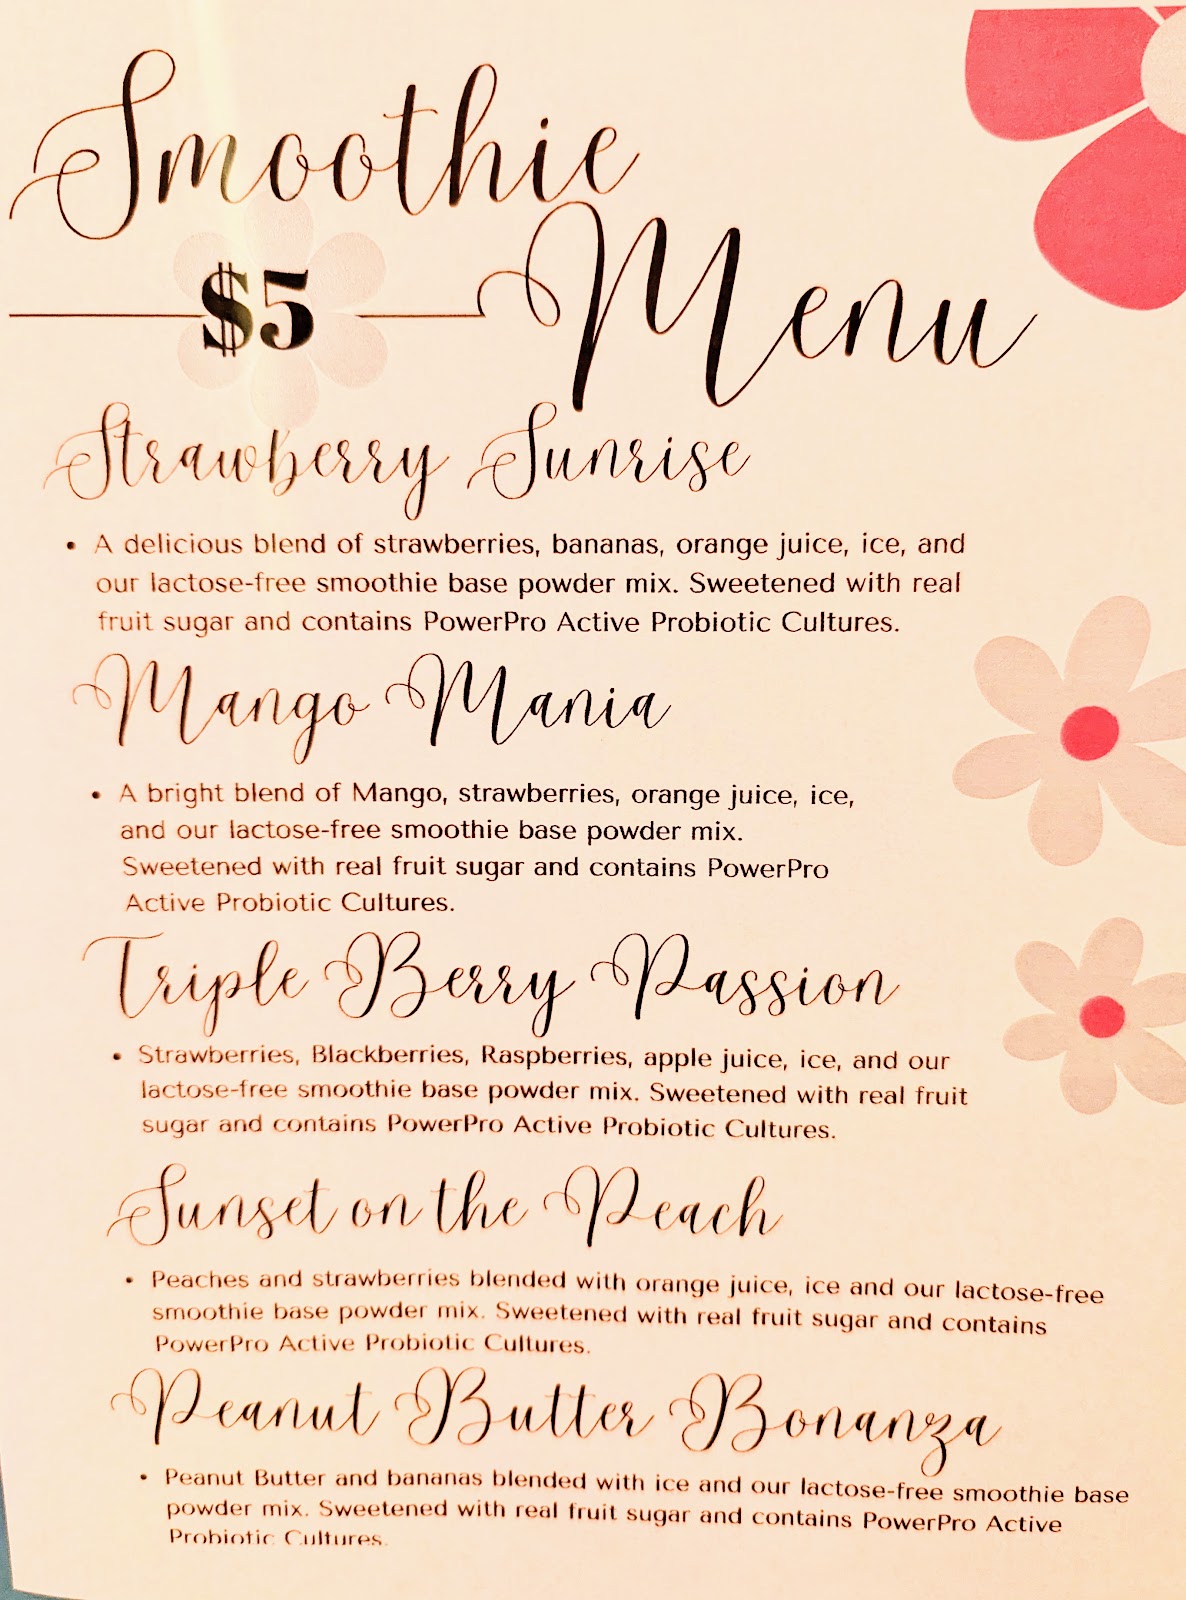 Smoothie
$5 Menu
Strawberry Sunrise
• A delicious blend of strawberries, bananas, orange juice, ice, and
our lactose-free smoothie base powder mix. Sweetened with real
fruit sugar and contains PowerPro Active Probiotic Cultures.
Mango Mania
• A bright blend of Mango, strawberries, orange juice, ice,
and our lactose-free smoothie base powder mix.
Sweetened with real fruit sugar and contains PowerPro
Active Probiotic Cultures.
Triple Berry Passion
• Strawberries, Blackberries, Raspberries, apple juice, ice, and our
lactose-free smoothie base powder mix. Sweetened with real fruit
sugar and contains PowerPro Active Probiotic Cultures.
Sunset on the Peach
• Peaches and strawberries blended with orange juice, ice and our lactose-free
smoothie base powder mix. Sweetened with real fruit sugar and contains
PowerPro Active Probiotic Cultures.
Peanut Butter Bonanza
• Peanut Butter and bananas blended with ice and our lactose-free smoothie base
powder mix. Sweetened with real fruit sugar and contains PowerPro Active
Probiotic Cultures.